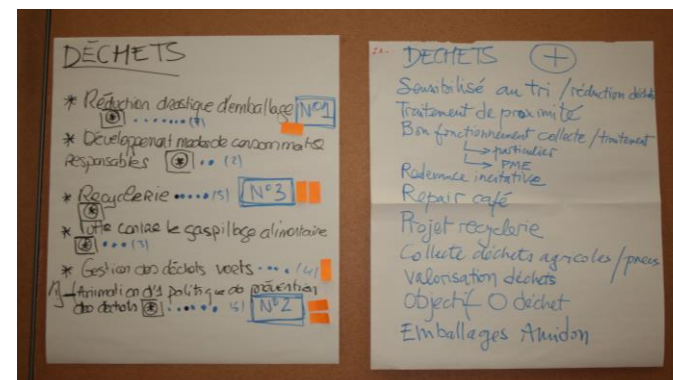 DÉCHETS
* Réduction drastique d'emballage N°1
* ....... (7)
* Développement modes de consommation
responsables * .. (2)
* Recyclerie ..... (5) N°3
*
* Lutte contre le gaspillage alimentaire
* ... (3)
* Gestion des déchets verts .... (4)
Animation d'1 politique de prévention
des déchets * ..... (5) N°2
DECHETS +
Sensibilisé au tri / réduction déchets
Traitement de proximité
Bon fonctionnement collecte / traitement
→ particulier
→ PME
Redevance incitative
Repair café
Projet recyclerie
Collecte déchets agricoles / pneus
Valorisation déchets
Objectif O déchet
Emballages Amidon